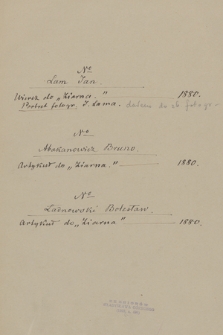 No
Lam Jan.
Wiersz do „Ziarna." 1880.
Portret fotogr. J. Lama.
No
Abakanowicz Bruno.
Artykuł do „Ziarna." 1880.
No
Ładnowski Bolesław.
Artykuł do „Ziarna" 1880.